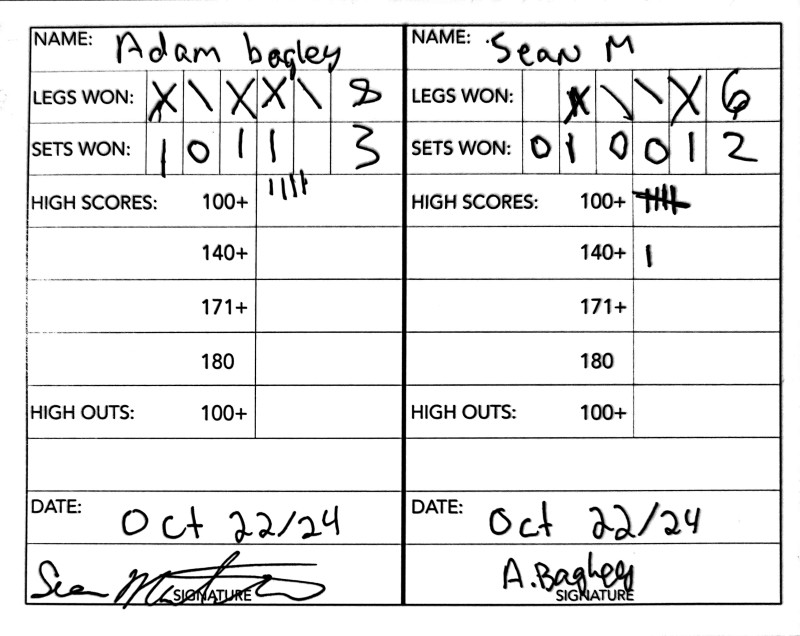 NAME: Adam bagley
LEGS WON: X \ X X \ 8
SETS WON: 1 0 1 1 3
HIGH SCORES: 100+ IIIII
140+
171+
180
HIGH OUTS: 100+
DATE: Oct 22/24
SIGNATURE
NAME: Sean M
LEGS WON: X \ \ X 6
SETS WON: 0 1 0 0 1 2
HIGH SCORES: 100+ IIII
140+ I
171+
180
HIGH OUTS: 100+
DATE: Oct 22/24
A.Bagley
SIGNATURE